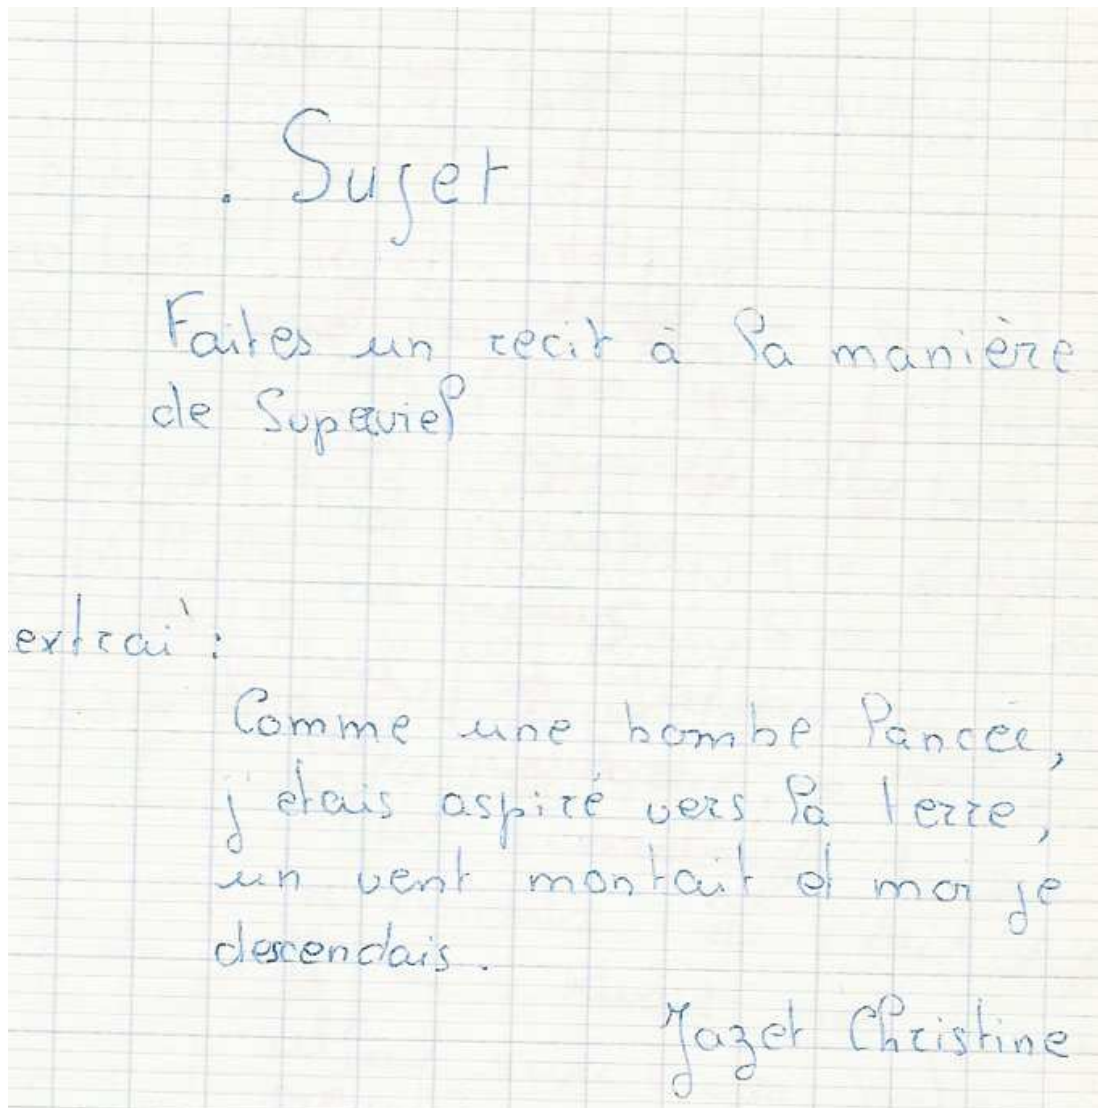 . Sujet
Faites un recit à la manière
de Supervief
extrai :
Comme une bombe lancée,
j'etais aspiré vers la terre,
un vent montait et moi je
descendais.
Jazet Christine